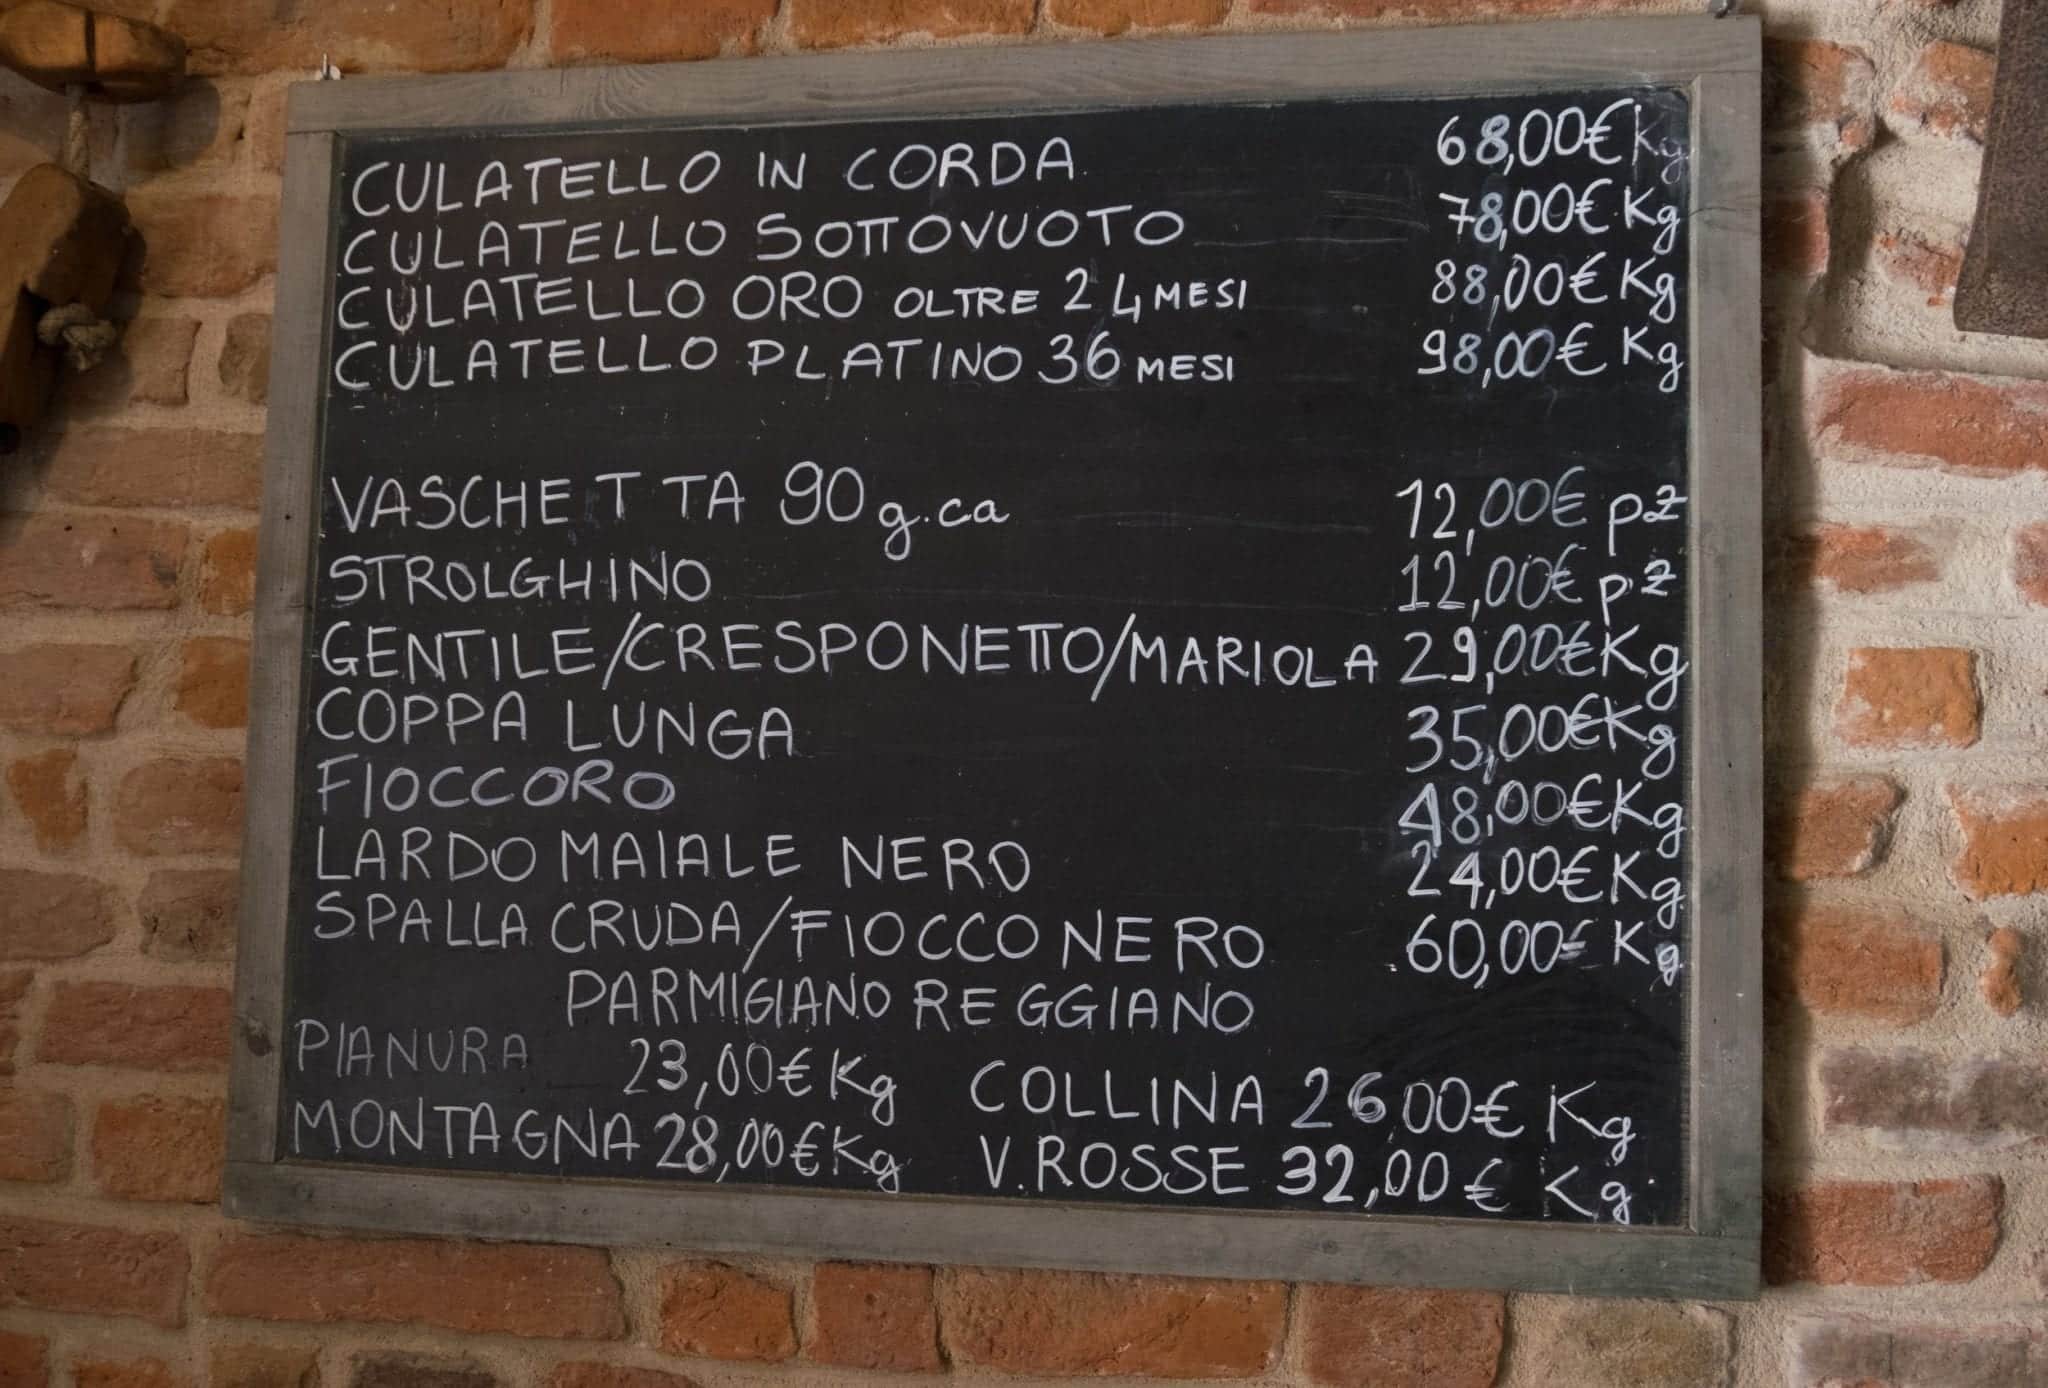 CULATELLO IN CORDA 68,00€ Kg
CULATELLO SOTTOVUOTO 78,00€ Kg
CULATELLO ORO OLTRE 24 MESI 88,00€ Kg
CULATELLO PLATINO 36 MESI 98,00€ Kg
VASCHETTA 90 g.ca 12,00€ pz
STROLGHINO 12,00€ pz
GENTILE/CRESPONETTO/MARIOLA 29,00€ Kg
COPPA LUNGA 35,00€ Kg
FIOCCORO 48,00€ Kg
LARDO MAIALE NERO 24,00€ Kg
SPALLA CRUDA/FIOCCO NERO 60,00€ Kg
PARMIGIANO REGGIANO
PIANURA 23,00€ Kg COLLINA 26,00€ Kg
MONTAGNA 28,00€ Kg V.ROSSE 32,00€ Kg